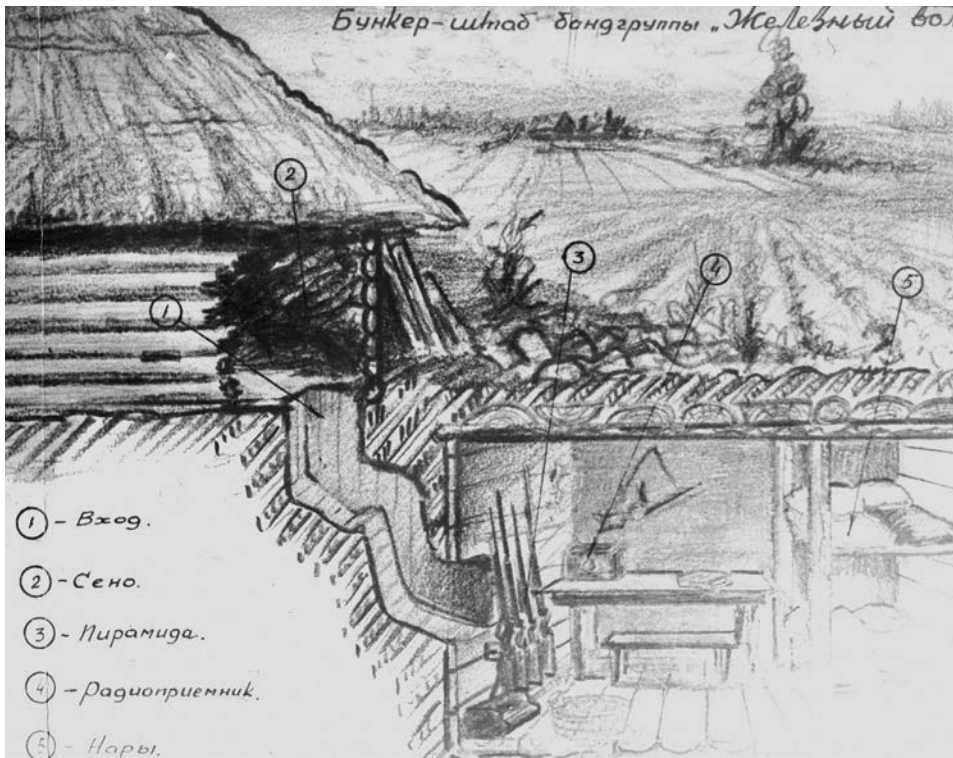 Бункер-штаб бандгруппы „Железный вол
2
3
4
5
1
1 - Вход.
2 - Сено.
3 - Пирамида.
4 - Радиоприемник.
5 - Нары.